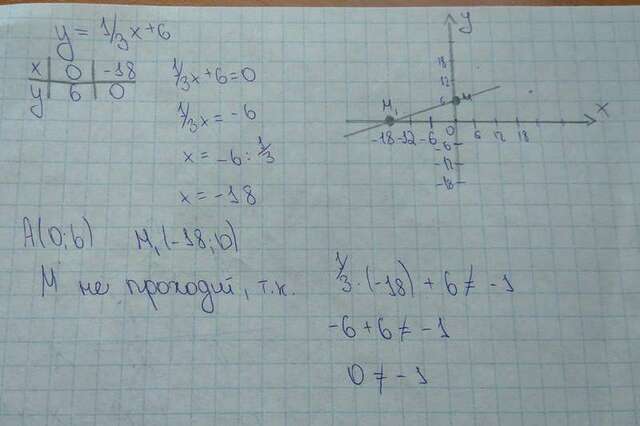 y = 1/3 x + 6
x | 0 | -18
y | 6 | 0
1/3 x + 6 = 0
1/3 x = -6
x = -6 : 1/3
x = -18
y
18
12
6 M
M₁ x
-18 -12 -6 0 6 12 18
-6
-12
-18
A(0;6) M₁(-18;0)
М не проходит, т.к. 1/3 · (-18) + 6 ≠ -1
-6 + 6 ≠ -1
0 ≠ -1